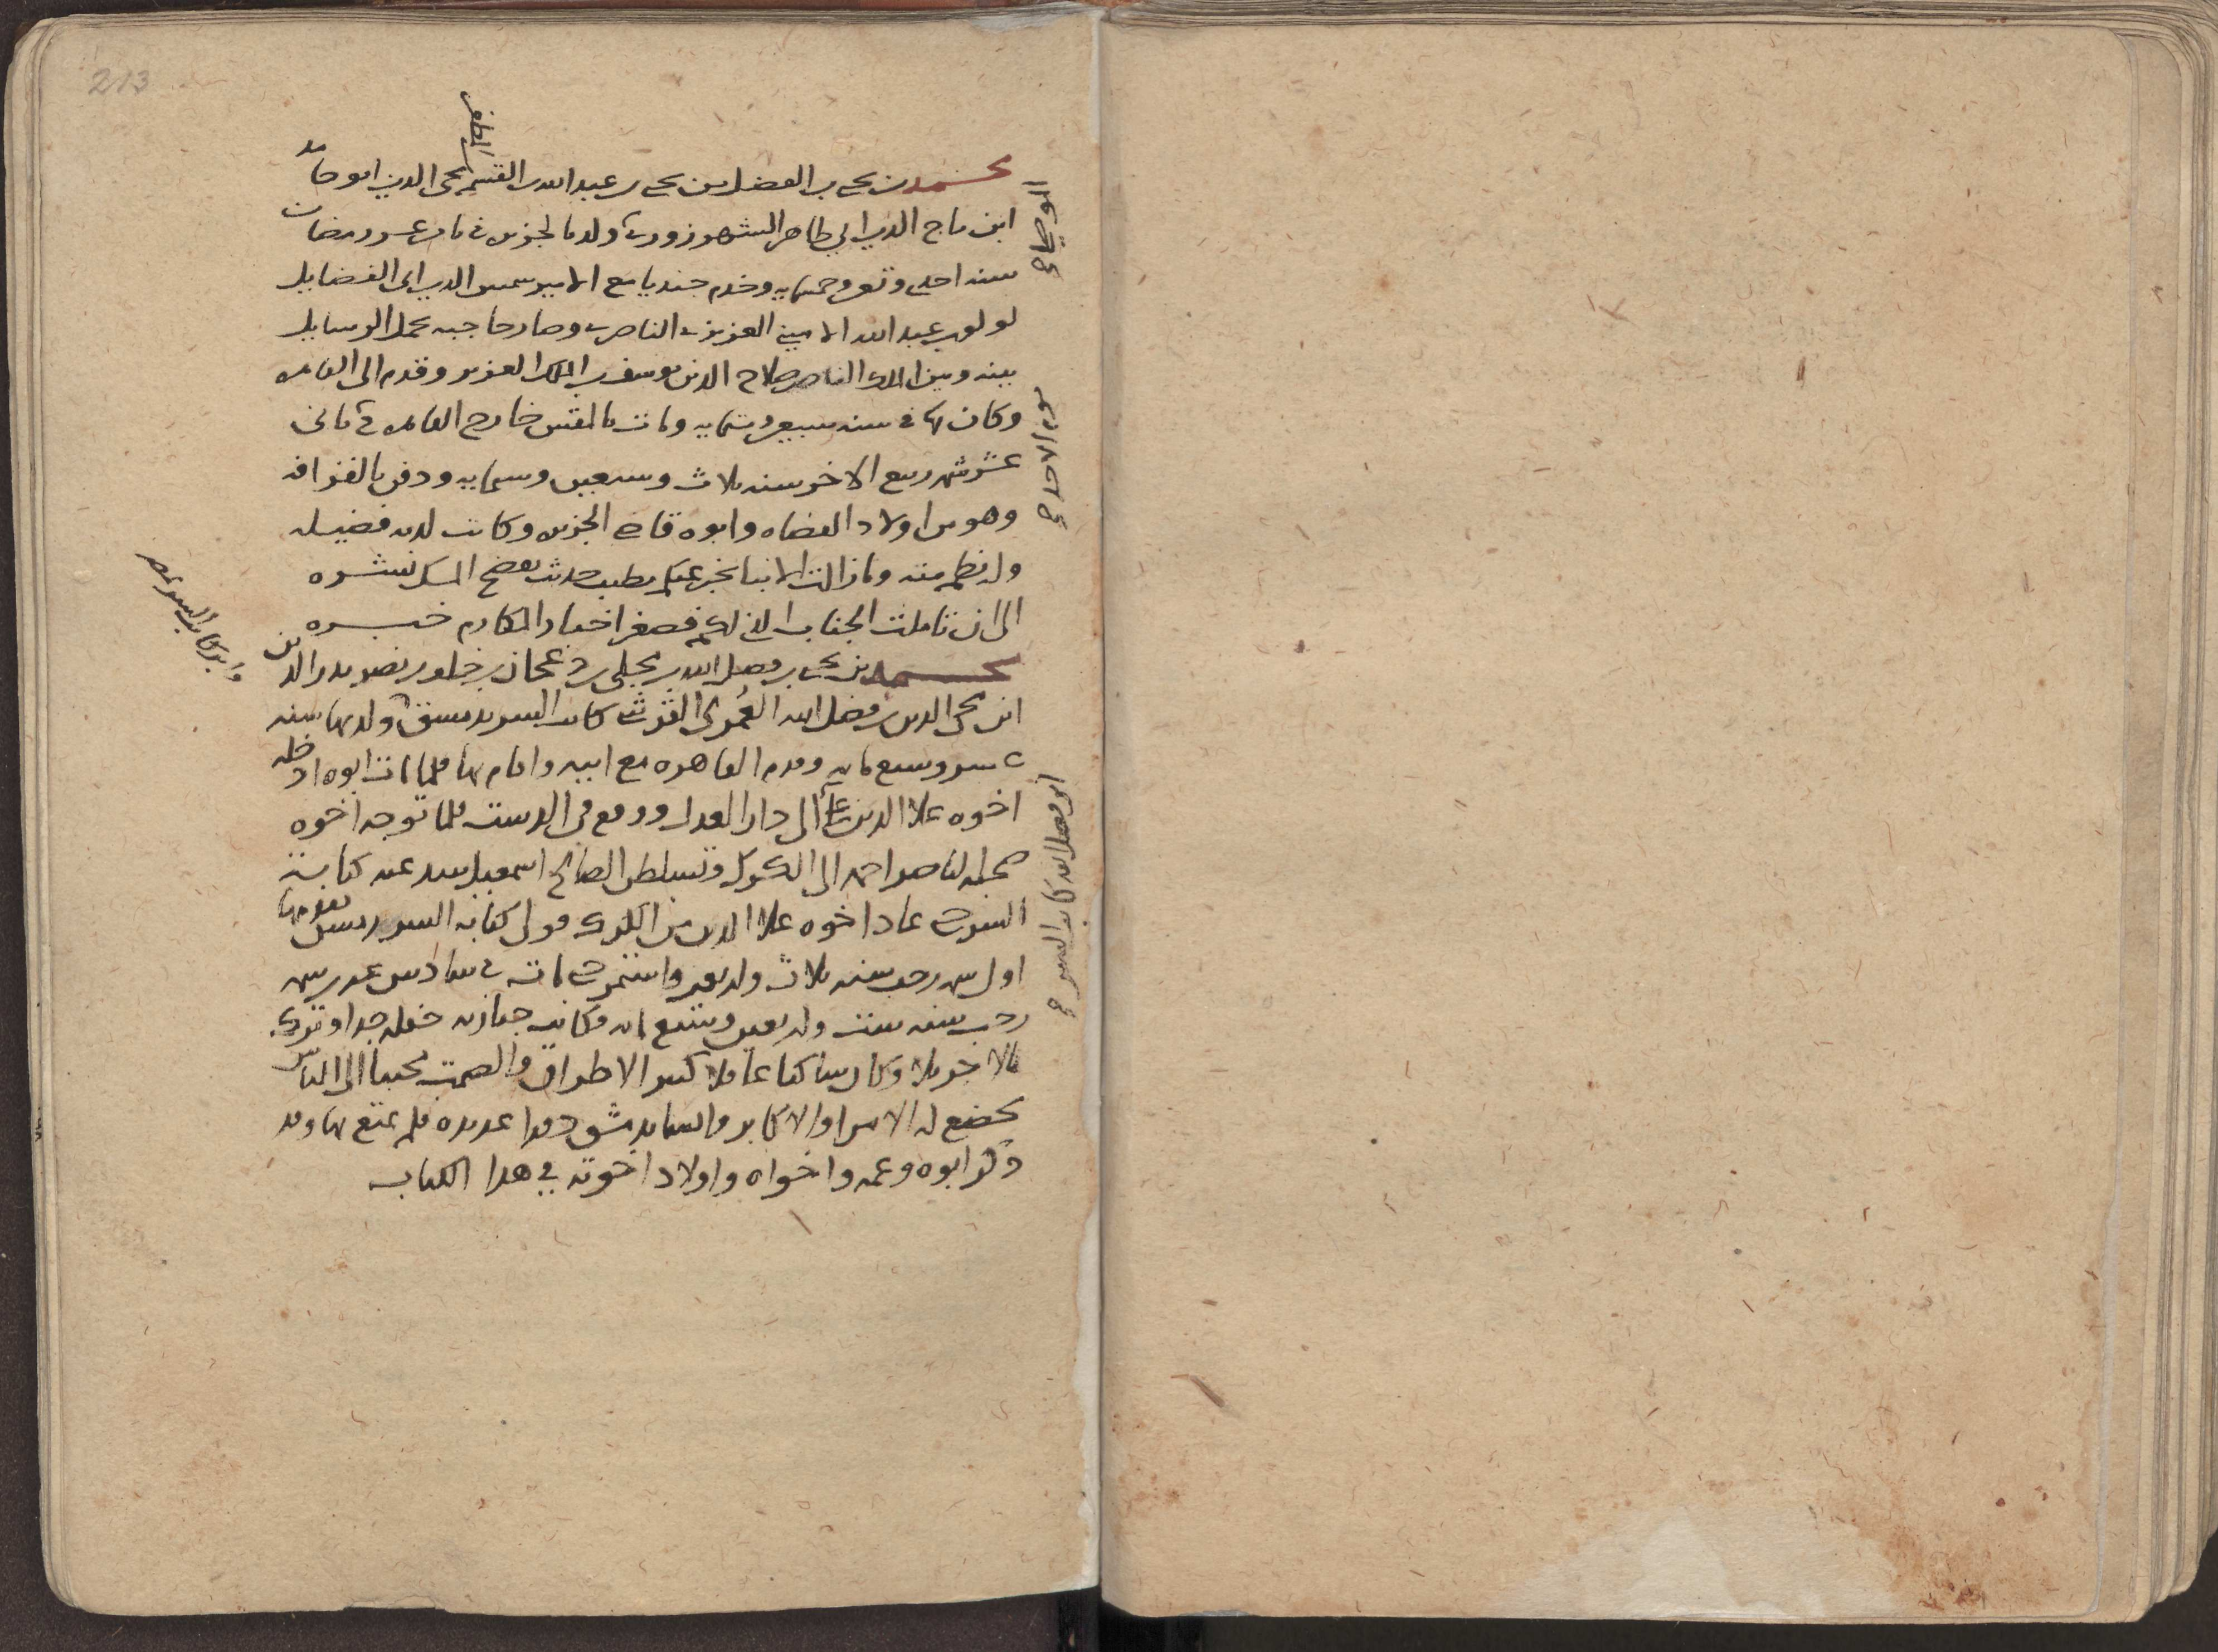 213
محمد بن يحيى بن الفضل بن يحيى بن عبد الله بن القسم محيى الدين ابو حامد
ابن تاج الدين ابي طاهر الشهرزوري ولد بالجزيره في ثامن عشر رمضان
سنه احدى وتسعين وخمسمايه وخدم جنديا مع الامير شمس الدين ابي الفضايل
لولو بن عبد الله الاميني العزيزي الناصري وصار حاجبه يحمل الرسايل
بينه وبين الملك الناصر صلاح الدين يوسف بن الملك العزيز وقدم الى القاهره
وكان بها في سنه سبعين وستمايه ومات بالمقس خارج القاهره في ثاني
عشر شهر ربيع الاخر سنه ثلاث وسبعين وستمايه ودفن بالقرافه
وهو من اولاد القضاه وابوه قاضي الجزيره وكانت لديه فضيله
وله نظم منه وما زالت الانبا تخبر عنكم بطيب حديث يفضح المسك نشره
الى ان تاملت الجناب الذي لكم فصغر اخبار المكارم خبره
محمد بن يحيى بن فضل الله بن مجلي بن دعجان بن خلف بن نصر بدر الدين
ابن محيى الدين بن فضل الله العمري القرشي كاتب السر بدمشق ولد بها سنه
عشر وسبعمايه وقدم القاهره مع ابيه واقام بها فلما مات ابوه ادخله
اخوه علا الدين علي الى دار العدل ووقع في الدست فلما توجه اخوه
صحبه الناصر احمد الى الكرك وتسلطن الصالح اسمعيل سد عنه كتابة
السر حتى عاد اخوه علا الدين من الكرك فولي كتابه السر بدمشق
اول شهر رجب سنه ثلاث واربعين واستمر حتى مات في سادس عشرين
رجب سنه ست واربعين وسبعمايه وكانت جنازته حفله جدا وترك
مالا جزيلا وكان ساكنا عاقلا كثير الاطراق والصمت محببا الى الناس
يخضع له الامرا والاكابر وانشا بدمشق دورا عديده فلم يمتع بها وقد
ذكر ابوه وعمه واخواه واولاد اخوته في هذا الكتاب
ابن فضل الله كاتب السر